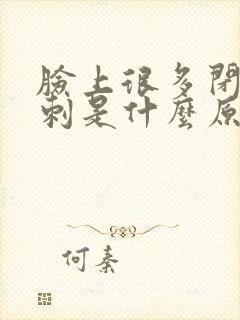 臉上很多閉
刺是什麼原
何秦